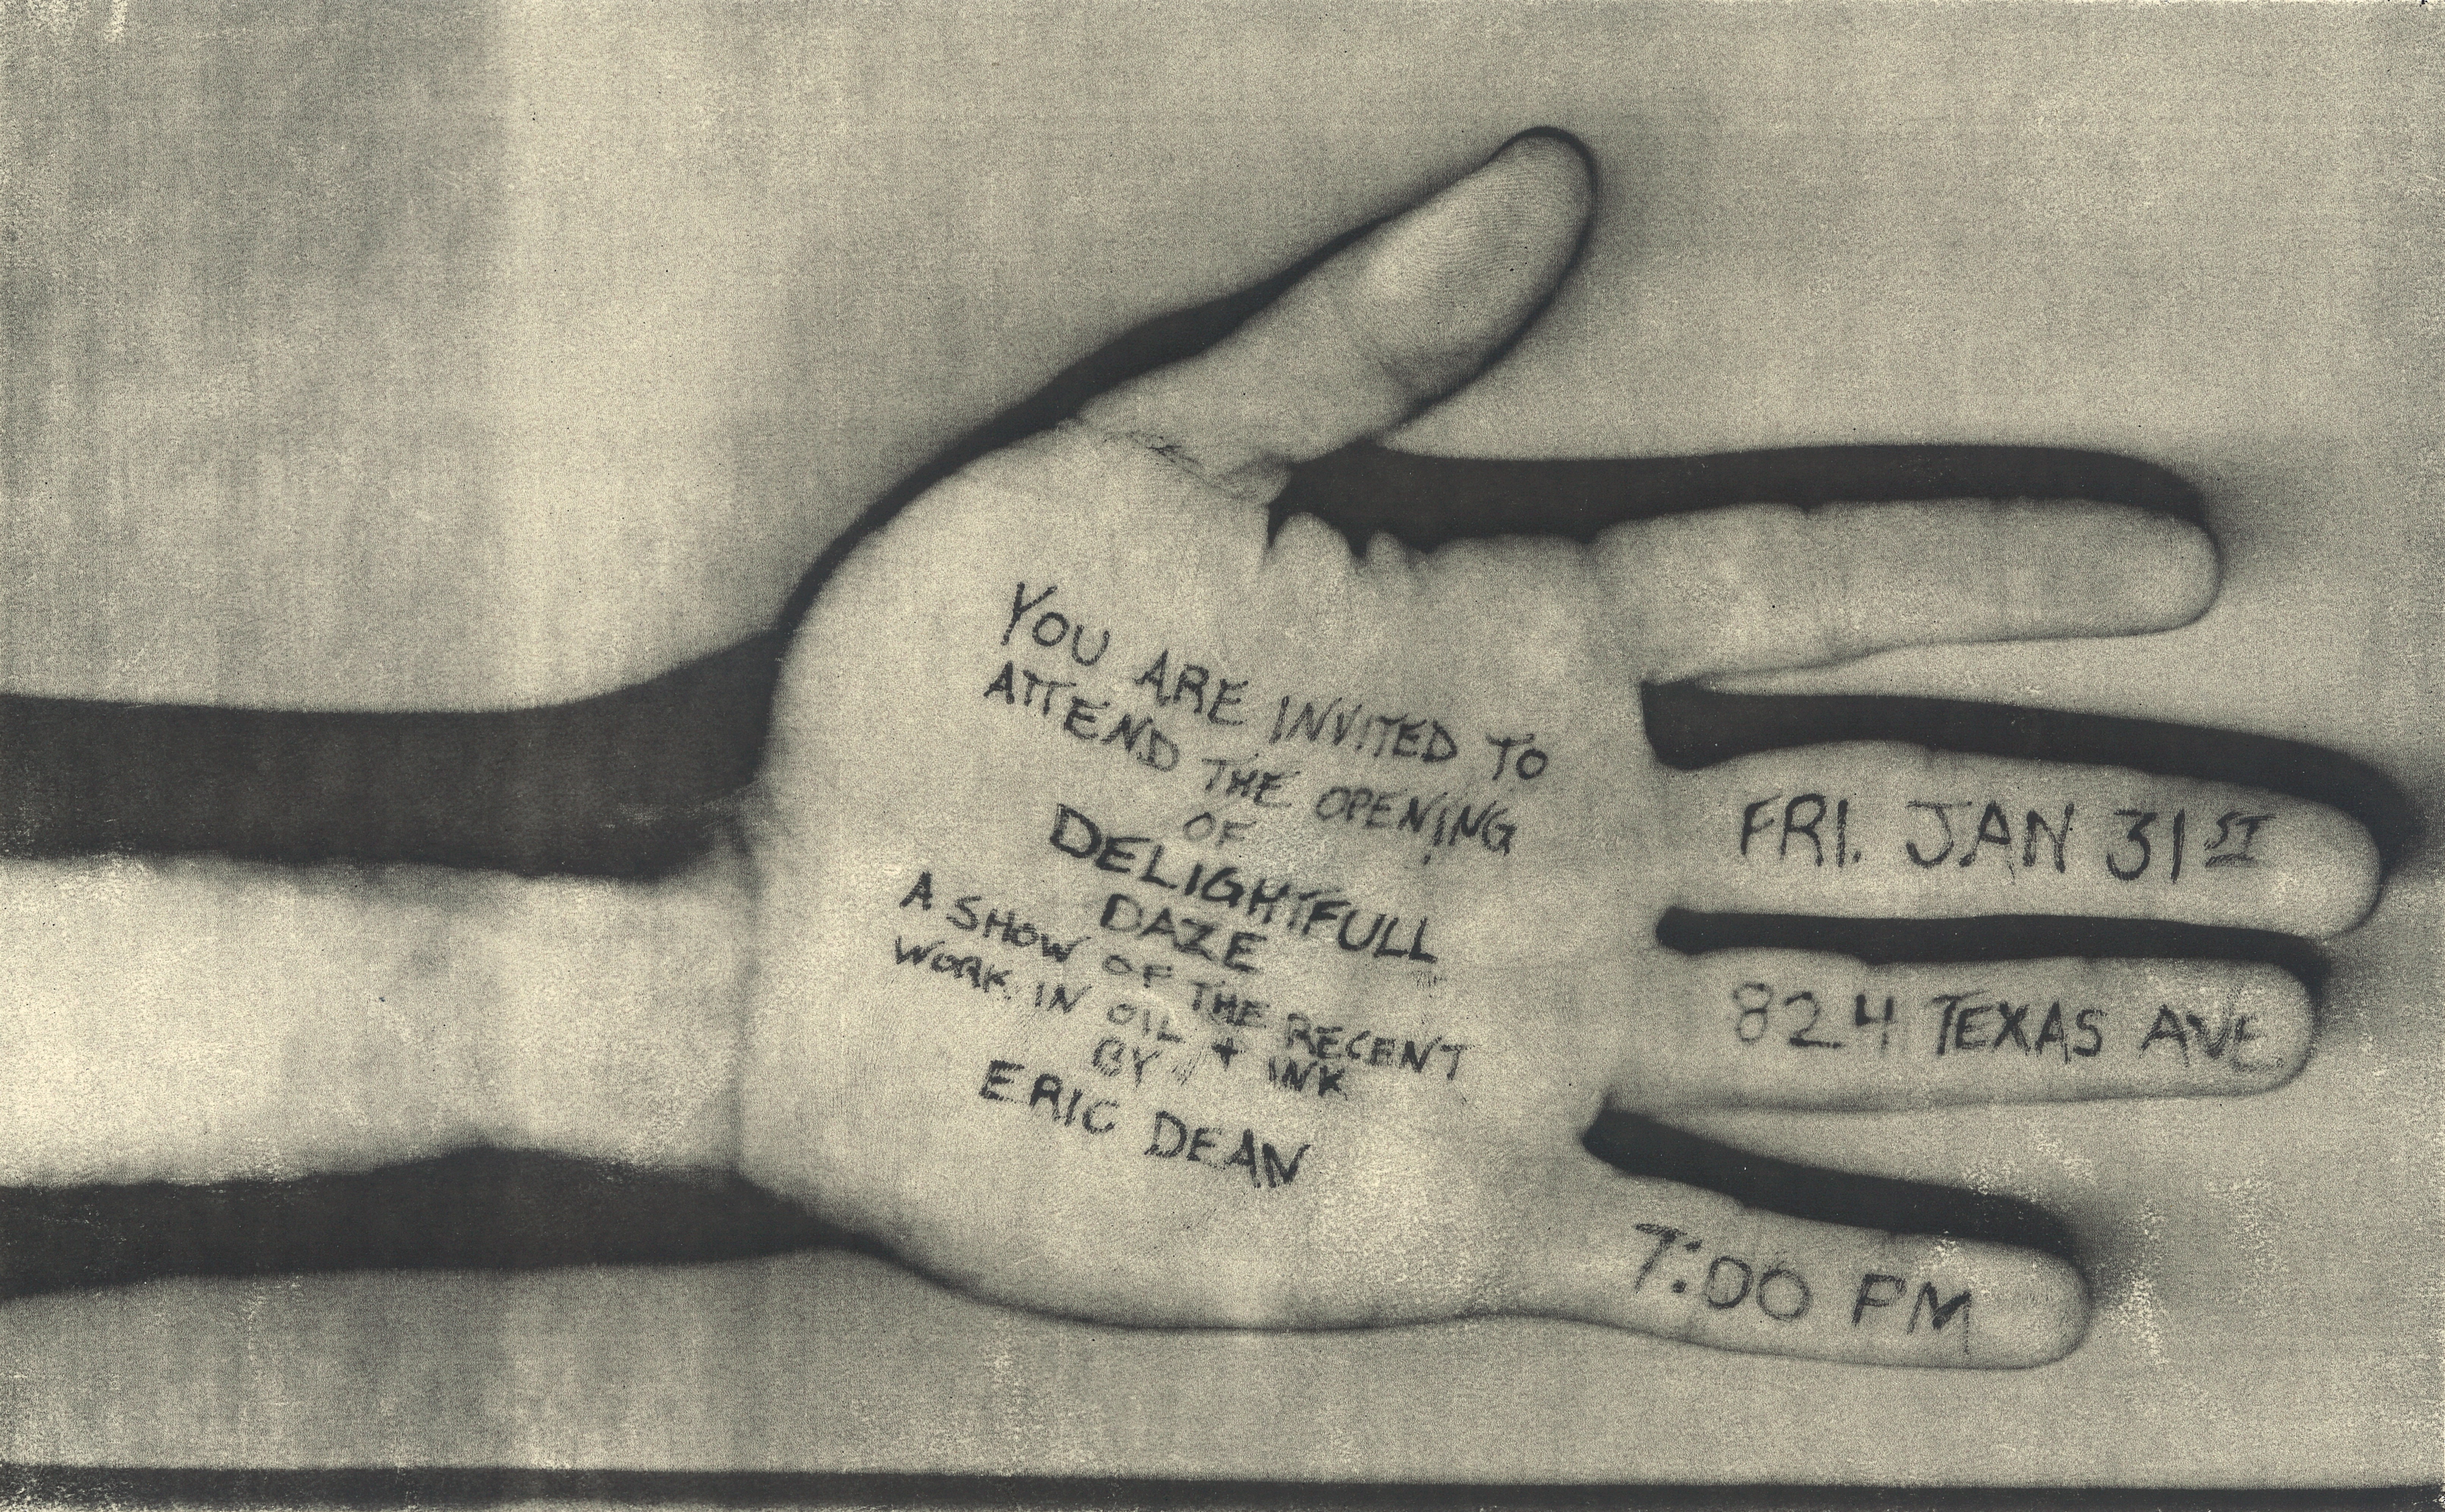 YOU ARE INVITED TO
ATTEND THE OPENING
OF
DELIGHTFULL
DAZE
A SHOW OF THE RECENT
WORK IN OIL + INK
BY
ERIC DEAN
FRI. JAN 31ST
824 TEXAS AVE
7:00 PM